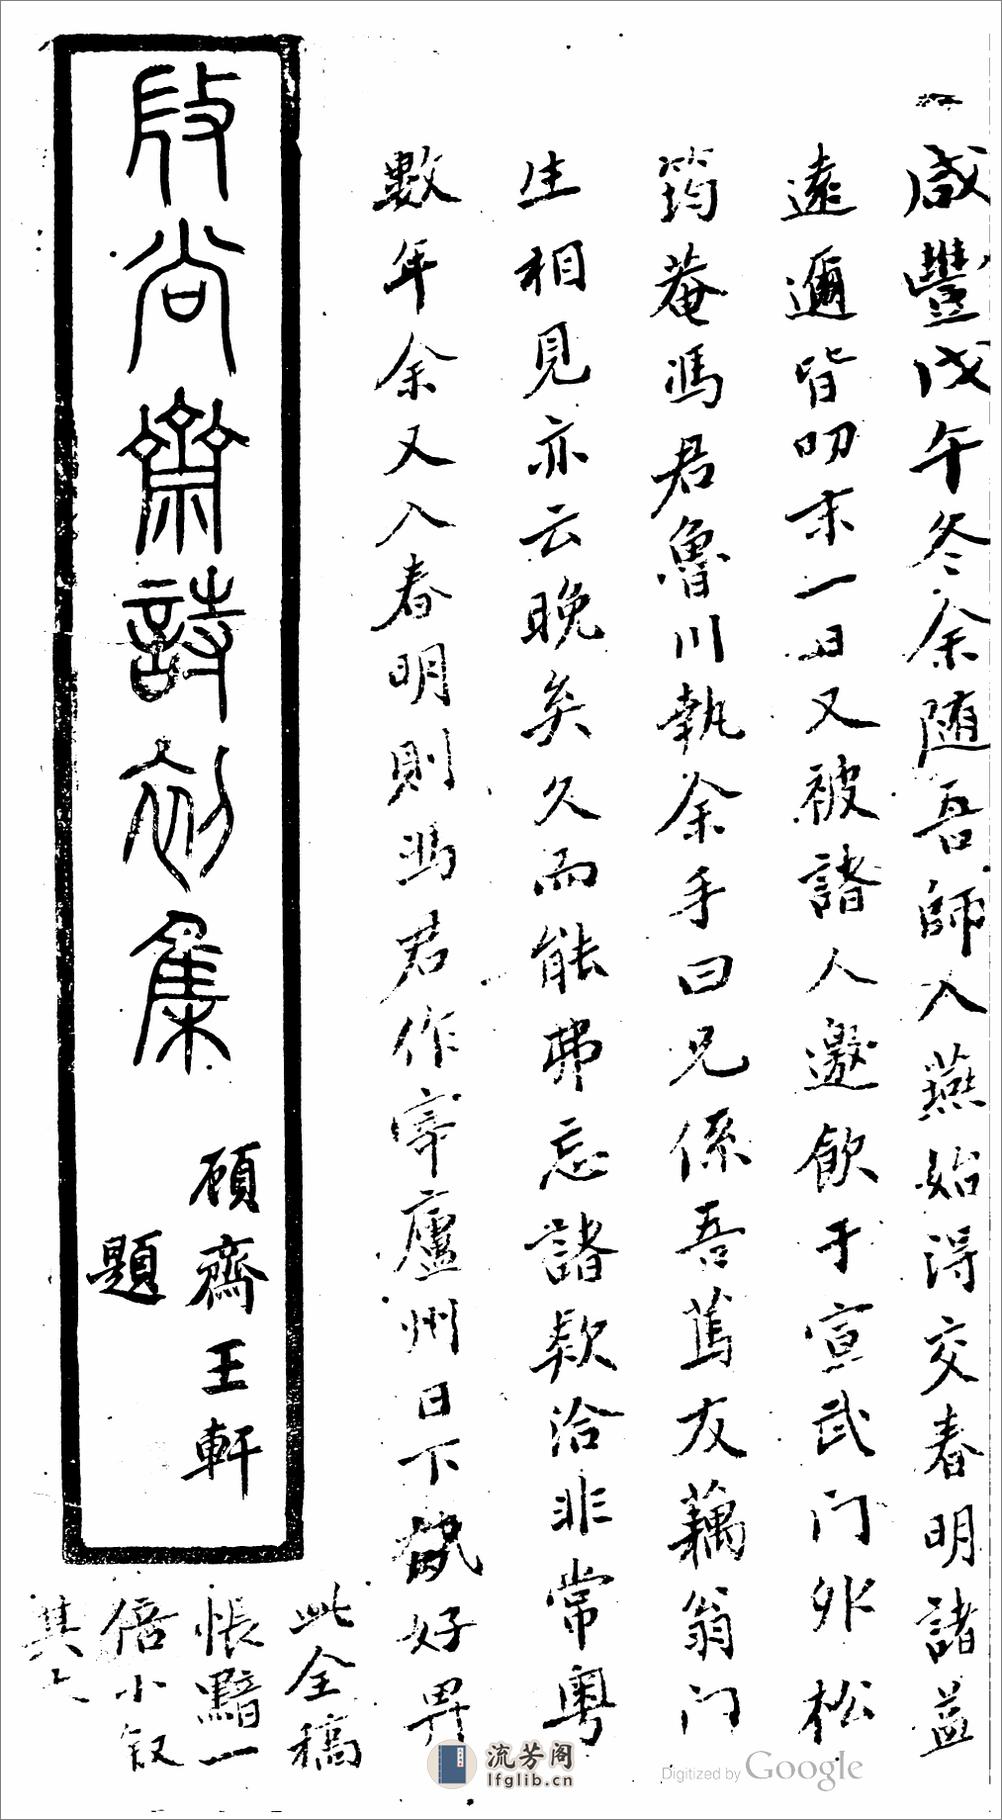 咸豐戊午冬余随吾師入燕始得交春明諸益
遠邇皆叨末一日又被諸人邀飲于宣武门外松
筠菴馮君魯川執余手曰兄係吾舊友藕翁门
生相見亦云晚矣久而能弗忘諸欵洽非常粤
數年余又入春明則馮君作宰廬州日下故好畀
此全稿
悵黯一
倍小叙
其
㲄尚齋詩初集
顧齋王軒
題
流芳阁
lfglib.cn
Digitized by Google